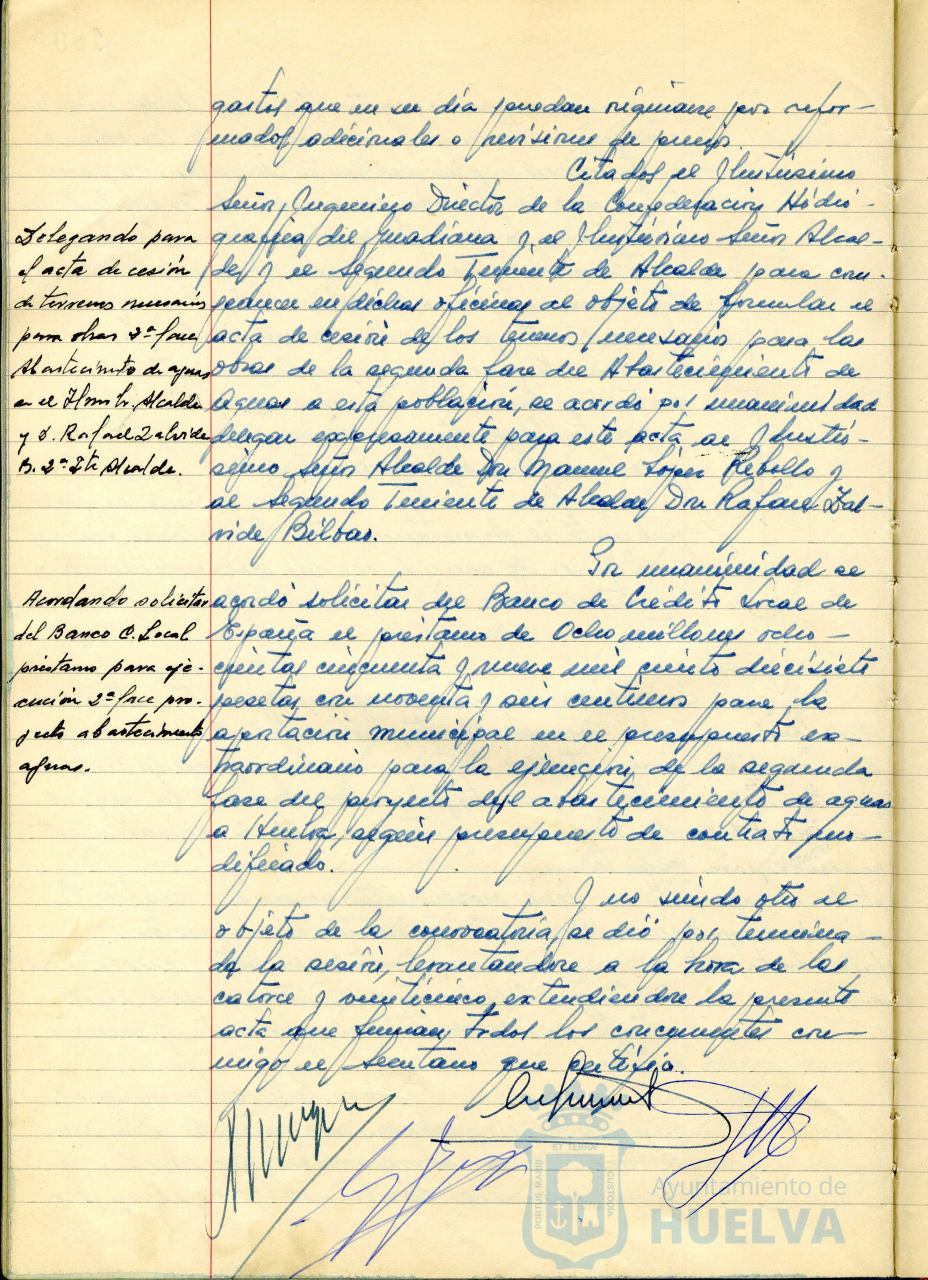 gastos que en su día puedan originarse por refor-
mados adicionales o revisiones de precios.
Citados el Ilustrísimo
Señor Ingeniero Director de la Confederación Hidro-
gráfica del Guadiana y el Ilustrísimo Señor Alcal-
de y el Segundo Teniente de Alcalde para com-
parecer en dichas oficinas al objeto de formular el
acta de cesión de los terrenos necesarios para las
obras de la segunda fase del Abastecimiento de
Aguas a esta población, se acordó por unanimidad
delegar expresamente para este acta al Ilustrí-
simo Señor Alcalde Don Manuel López Rebollo y
al Segundo Teniente de Alcalde Don Rafael Zal-
vide Bilbao.
Delegando para
el acta de cesión
de terrenos necesarios
para obras 2ª fase
Abastecimto de aguas
en el Ilmo Sr. Alcalde
y D. Rafael Zalvide
B. 2º Tte Alcalde.
Por unanimidad se
acordó solicitar del Banco de Crédito Local de
España el préstamo de Ocho millones ocho-
cientas cincuenta y nueve mil ciento diecisiete
pesetas con noventa y seis centimos para la
aportación municipal en el presupuesto ex-
traordinario para la ejecución de la segunda
fase del proyecto del abastecimiento de aguas
a Huelva, según presupuesto de contrata mo-
dificado.
Acordando solicitar
del Banco C. Local
préstamo para eje-
cución 2ª fase pro-
yecto abastecimiento
aguas.
Y no siendo otro el
objeto de la convocatoria, se dió por termina-
da la sesión, levantandose a la hora de las
catorce y veinticinco, extendiendose la presente
acta que firman todos los concurrentes con-
migo el Secretario que certifico.
PORTUS MARIS
ET TERRA
CUSTODIA
Ayuntamiento de
HUELVA